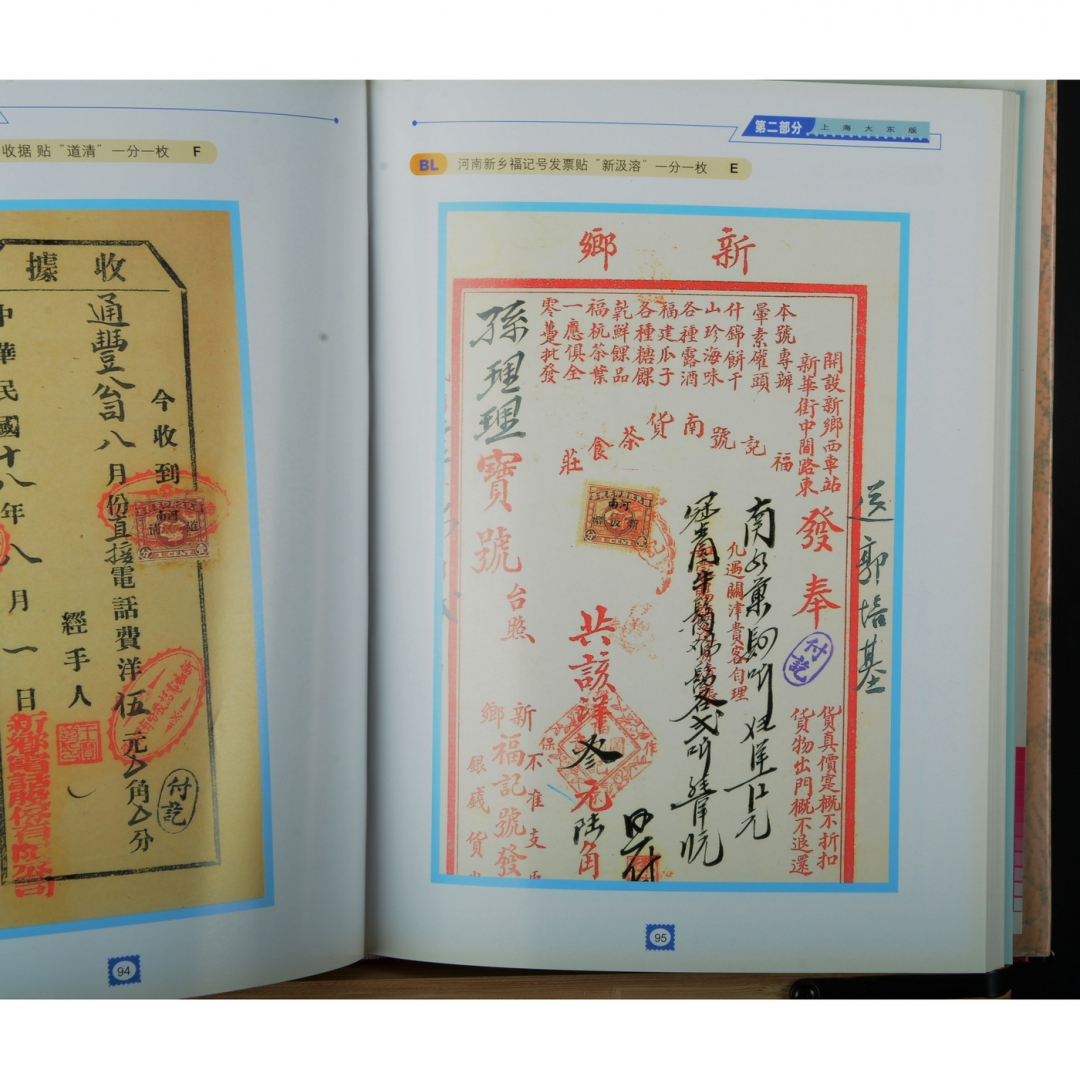 收据 贴“道清”一分一枚 F
收據
今收到
通豐公司八月份直接電話費洋伍元 角 分
經手人
付訖
中華民國十八年八月一日
新鄉電話股份有限公司
河南
94
第二部分 上海大东版
BL 河南新乡福记号发票贴“新汲溶”一分一枚 E
新鄉
開設新鄉西車站
新華街中間路東
本號專辦
暈素罐頭
什錦餅干
山珍海味
各種露酒
福建瓜子
各種糖餜
乾鮮餜品
福杭茶葉
一應俱全
零躉批發
福記號南貨茶食莊
發奉
付訖
送郭培基
貨真價寔概不折扣
貨物出門概不退還
凡遇關津貴客自理
河南
共該洋叁元陸角
孫理理寶號台照
新鄉福記號發
不准支
銀錢貨
95